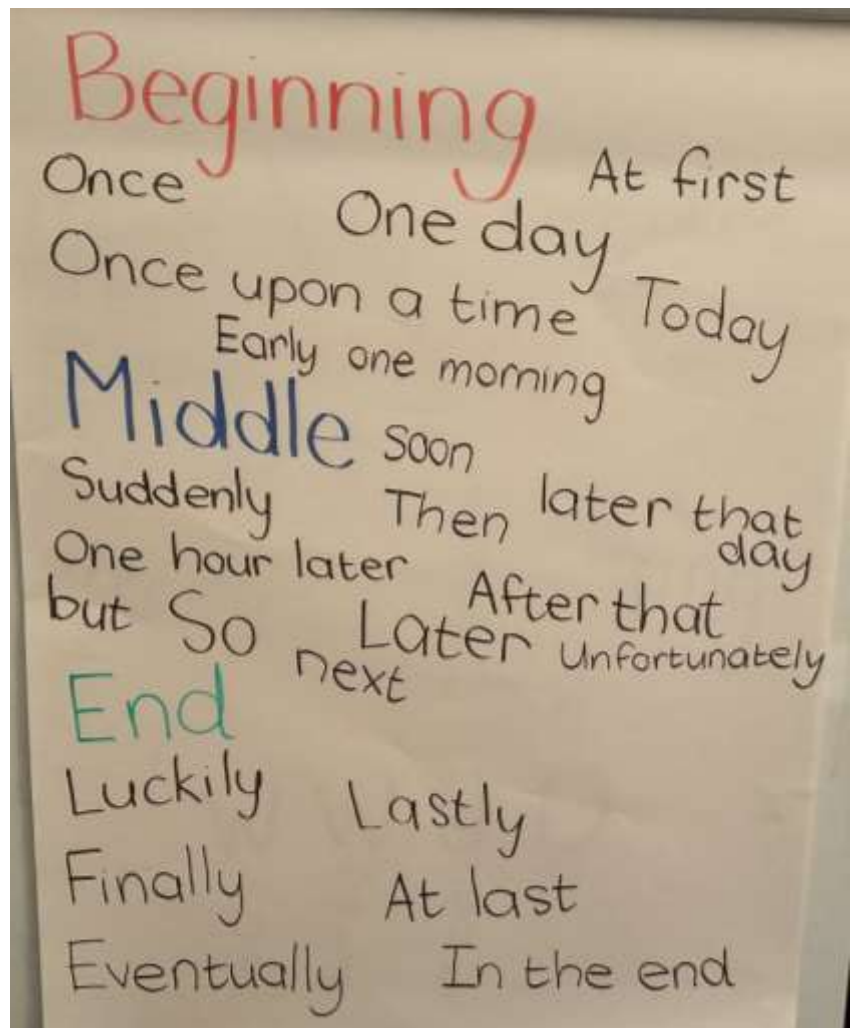 Beginning
Once At first
One day
Once upon a time Today
Early one morning
Middle soon
Suddenly Then later that day
One hour later After that
but So Later Unfortunately
next
End
Luckily Lastly
Finally At last
Eventually In the end